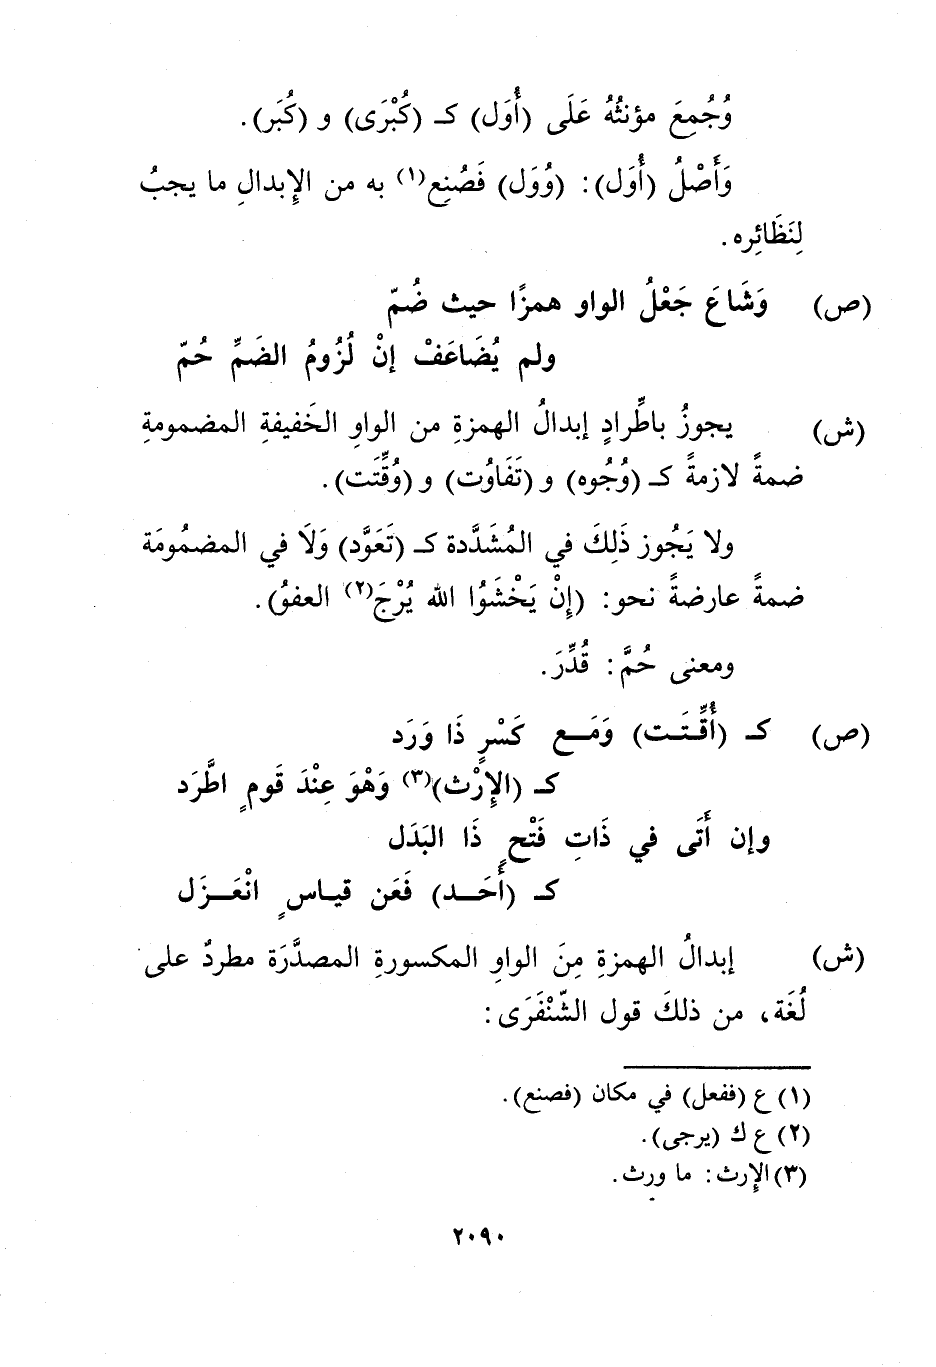 وُجُمِعَ مؤنثُهُ عَلَى (أُوَل) كـ (كُبْرَى) و (كُبَر).
وَأَصْلُ (أُوَل): (وُوَل) فَصُنِع(١) به من الإِبدالِ ما يجبُ
لِنَظَائِره.
(ص) وَشَاعَ جَعْلُ الواو همزًا حيث ضُمّ
ولم يُضَاعَفْ إنْ لُزُومُ الضَمِّ حُمّ
(ش) يجوزُ باطِّرادٍ إبدالُ الهمزةِ من الواوِ الخَفيفةِ المضمومةِ
ضمةً لازمةً كـ (وُجُوه) و (تَفَاوُت) و (وُقِّتَت).
ولا يَجُوز ذَلِكَ في المُشَدَّدة كـ (تَعَوَّد) وَلَا في المضمُومَة
ضمةً عارضةً نحو: (إِنْ يَخْشَوُا الله يُرْجَ(٢) العفوُ).
ومعنى حُمَّ: قُدِّرَ.
(ص) كـ (أُقِّتَـت) وَمَـع كَسْرٍ ذَا وَرَد
كـ (الإِرْث)(٣) وَهْوَ عِنْدَ قَومٍ اطَّرَد
وإن أَتَى في ذَاتِ فَتْحٍ ذَا البَدَل
كـ (أَحَـد) فَعَن قيـاسٍ انْعَـزَل
(ش) إبدالُ الهمزةِ مِنَ الواوِ المكسورةِ المصدَّرَة مطردٌ على
لُغَة، من ذلكَ قول الشّنْفَرَى:
(١) ع (ففعل) في مكان (فصنع).
(٢) ع ك (يرجى).
(٣) الإِرث: ما ورث.
٢٠٩٠